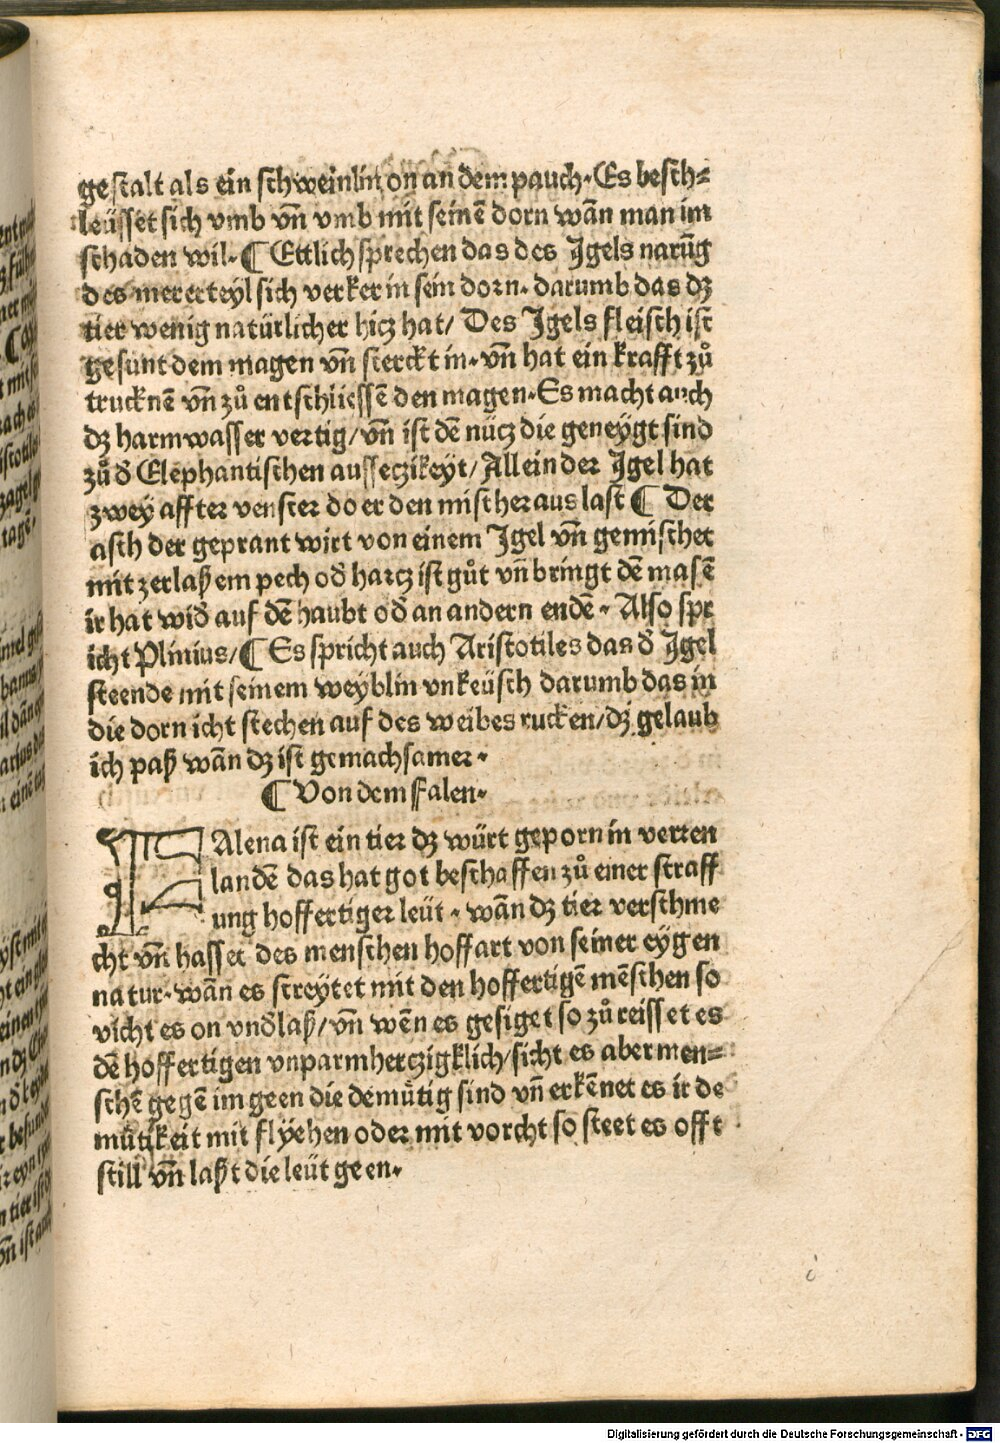 gestalt als ein schweinlin on an dem pauch·Es besch⸗
leüsset sich vmb vn̄ vmb mit seinē dorn wān man im
schaden wil·¶ Ettlich sprechen das des Jgels narūg
des merer teyl sich verker in sein dorn· darumb das dꝫ
tier wenig natürlicher hicz hat/ Des Jgels fleisch ist
gesunt dem magen vn̄ sterckt in·vn̄ hat ein krafft zů
trucknē vn̄ zů entschliessē den magen·Es macht auch
dꝫ harmwasser vertig/vn̄ ist dē nücz die geneygt sind
zů d̄ Elephantischen ausseczikeyt/Allein der Jgel hat
zwey affter venster do er den mist heraus last ¶ Der
asch der geprant wirt von einem Jgel vn̄ gemischet
mit zerlaßem pech od̄ harcz ist gůt vn̄ bringt dē masē
ir hat wid̄ auf dē haubt od̄ an andern endē· Also spr
icht Plinius/¶ Es spricht auch Aristotiles das d̄ Jgel
steende mit seinem weyblin vnkeüsch darumb das in
die dorn icht stechen auf des weibes rucken/dꝫ gelaub
ich paß wān dꝫ ist gemachsamer·
¶ Von dem Falen·
FAlena ist ein tier dꝫ würt geporn in verren
landē das hat got beschaffen zů einer straff
ung hoffertiger leüt· wān dꝫ tier verschme
cht vn̄ hasset des menschen hoffart von seiner eygen
natur·wān es streytet mit den hoffertigē mēschen so
vicht es on vnd̄laß/vn̄ wēn es gesiget so zů reisset es
dē hoffertigen vnparmherczigklich/sicht es aber men⸗
schē gegē im geen die demůtig sind vn̄ erkēnet es ir de
můtikeit mit flÿehen oder mit vorcht so steet es offt
still vn̄ laßt die leüt geen·
Digitalisierung gefördert durch die Deutsche Forschungsgemeinschaft - DFG